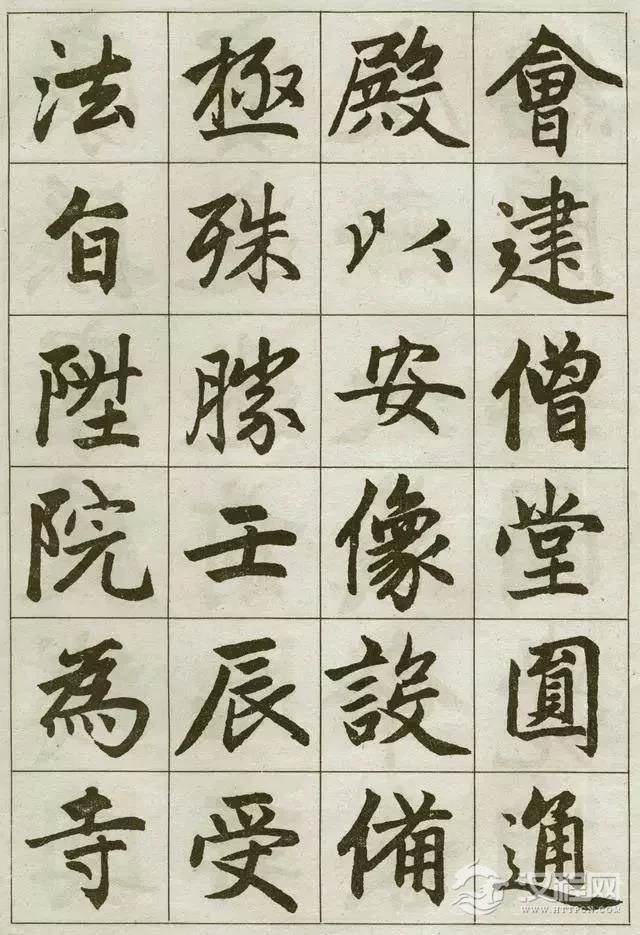 會建僧堂圓通
殿以安像設備
極殊勝壬辰受
法旨陞院為寺
汉程网
WWW.HTTPCN.COM